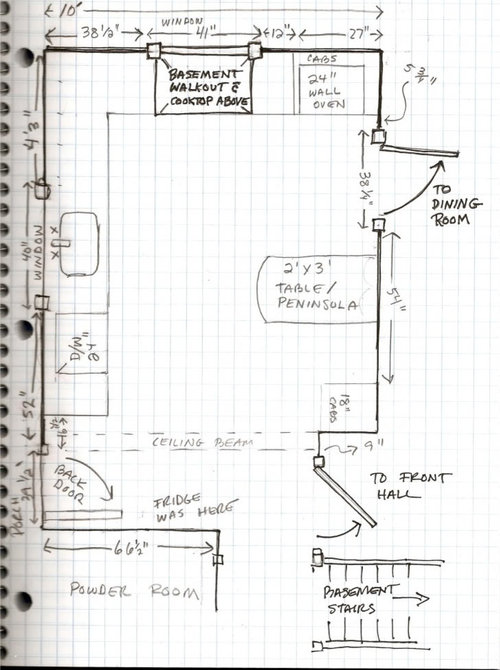 10'
WINDOW
38 1/2"
41"
12"
27"
CABS
24"
WALL
OVEN
BASEMENT
WALKOUT &
COOKTOP ABOVE
5 3/4"
4'3"
38 1/4"
TO
DINING
ROOM
40"
WINDOW
X
X
2' X 3'
TABLE/
PENINSOLA
54"
24"
D/W
52"
18"
CABS
CEILING BEAM
9"
BACK
DOOR
FRIDGE
WAS HERE
TO FRONT
HALL
PORCH
66 1/2"
POWDER ROOM
BASEMENT
STAIRS